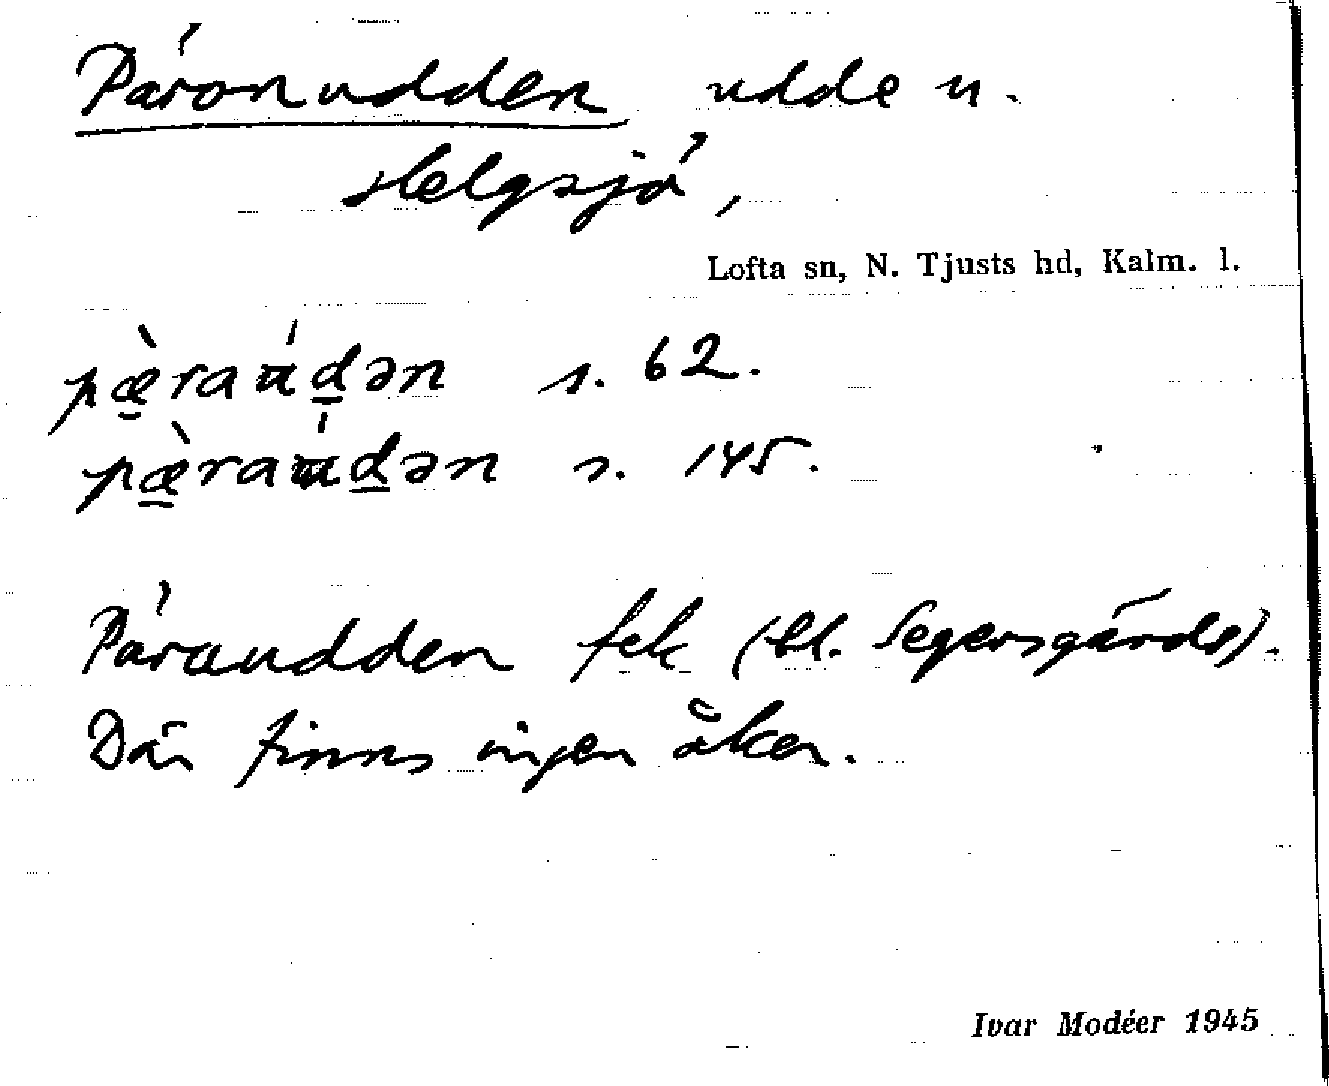 Päronudden udde n.
Helgsjö,
Lofta sn, N. Tjusts hd, Kalm. l.
pæ̀raúdən s. 62.
pæ̀raúdən s. 145.
Päraudden fek (bl. Segersgärde).
Där finns ingen åker.
Ivar Modéer 1945